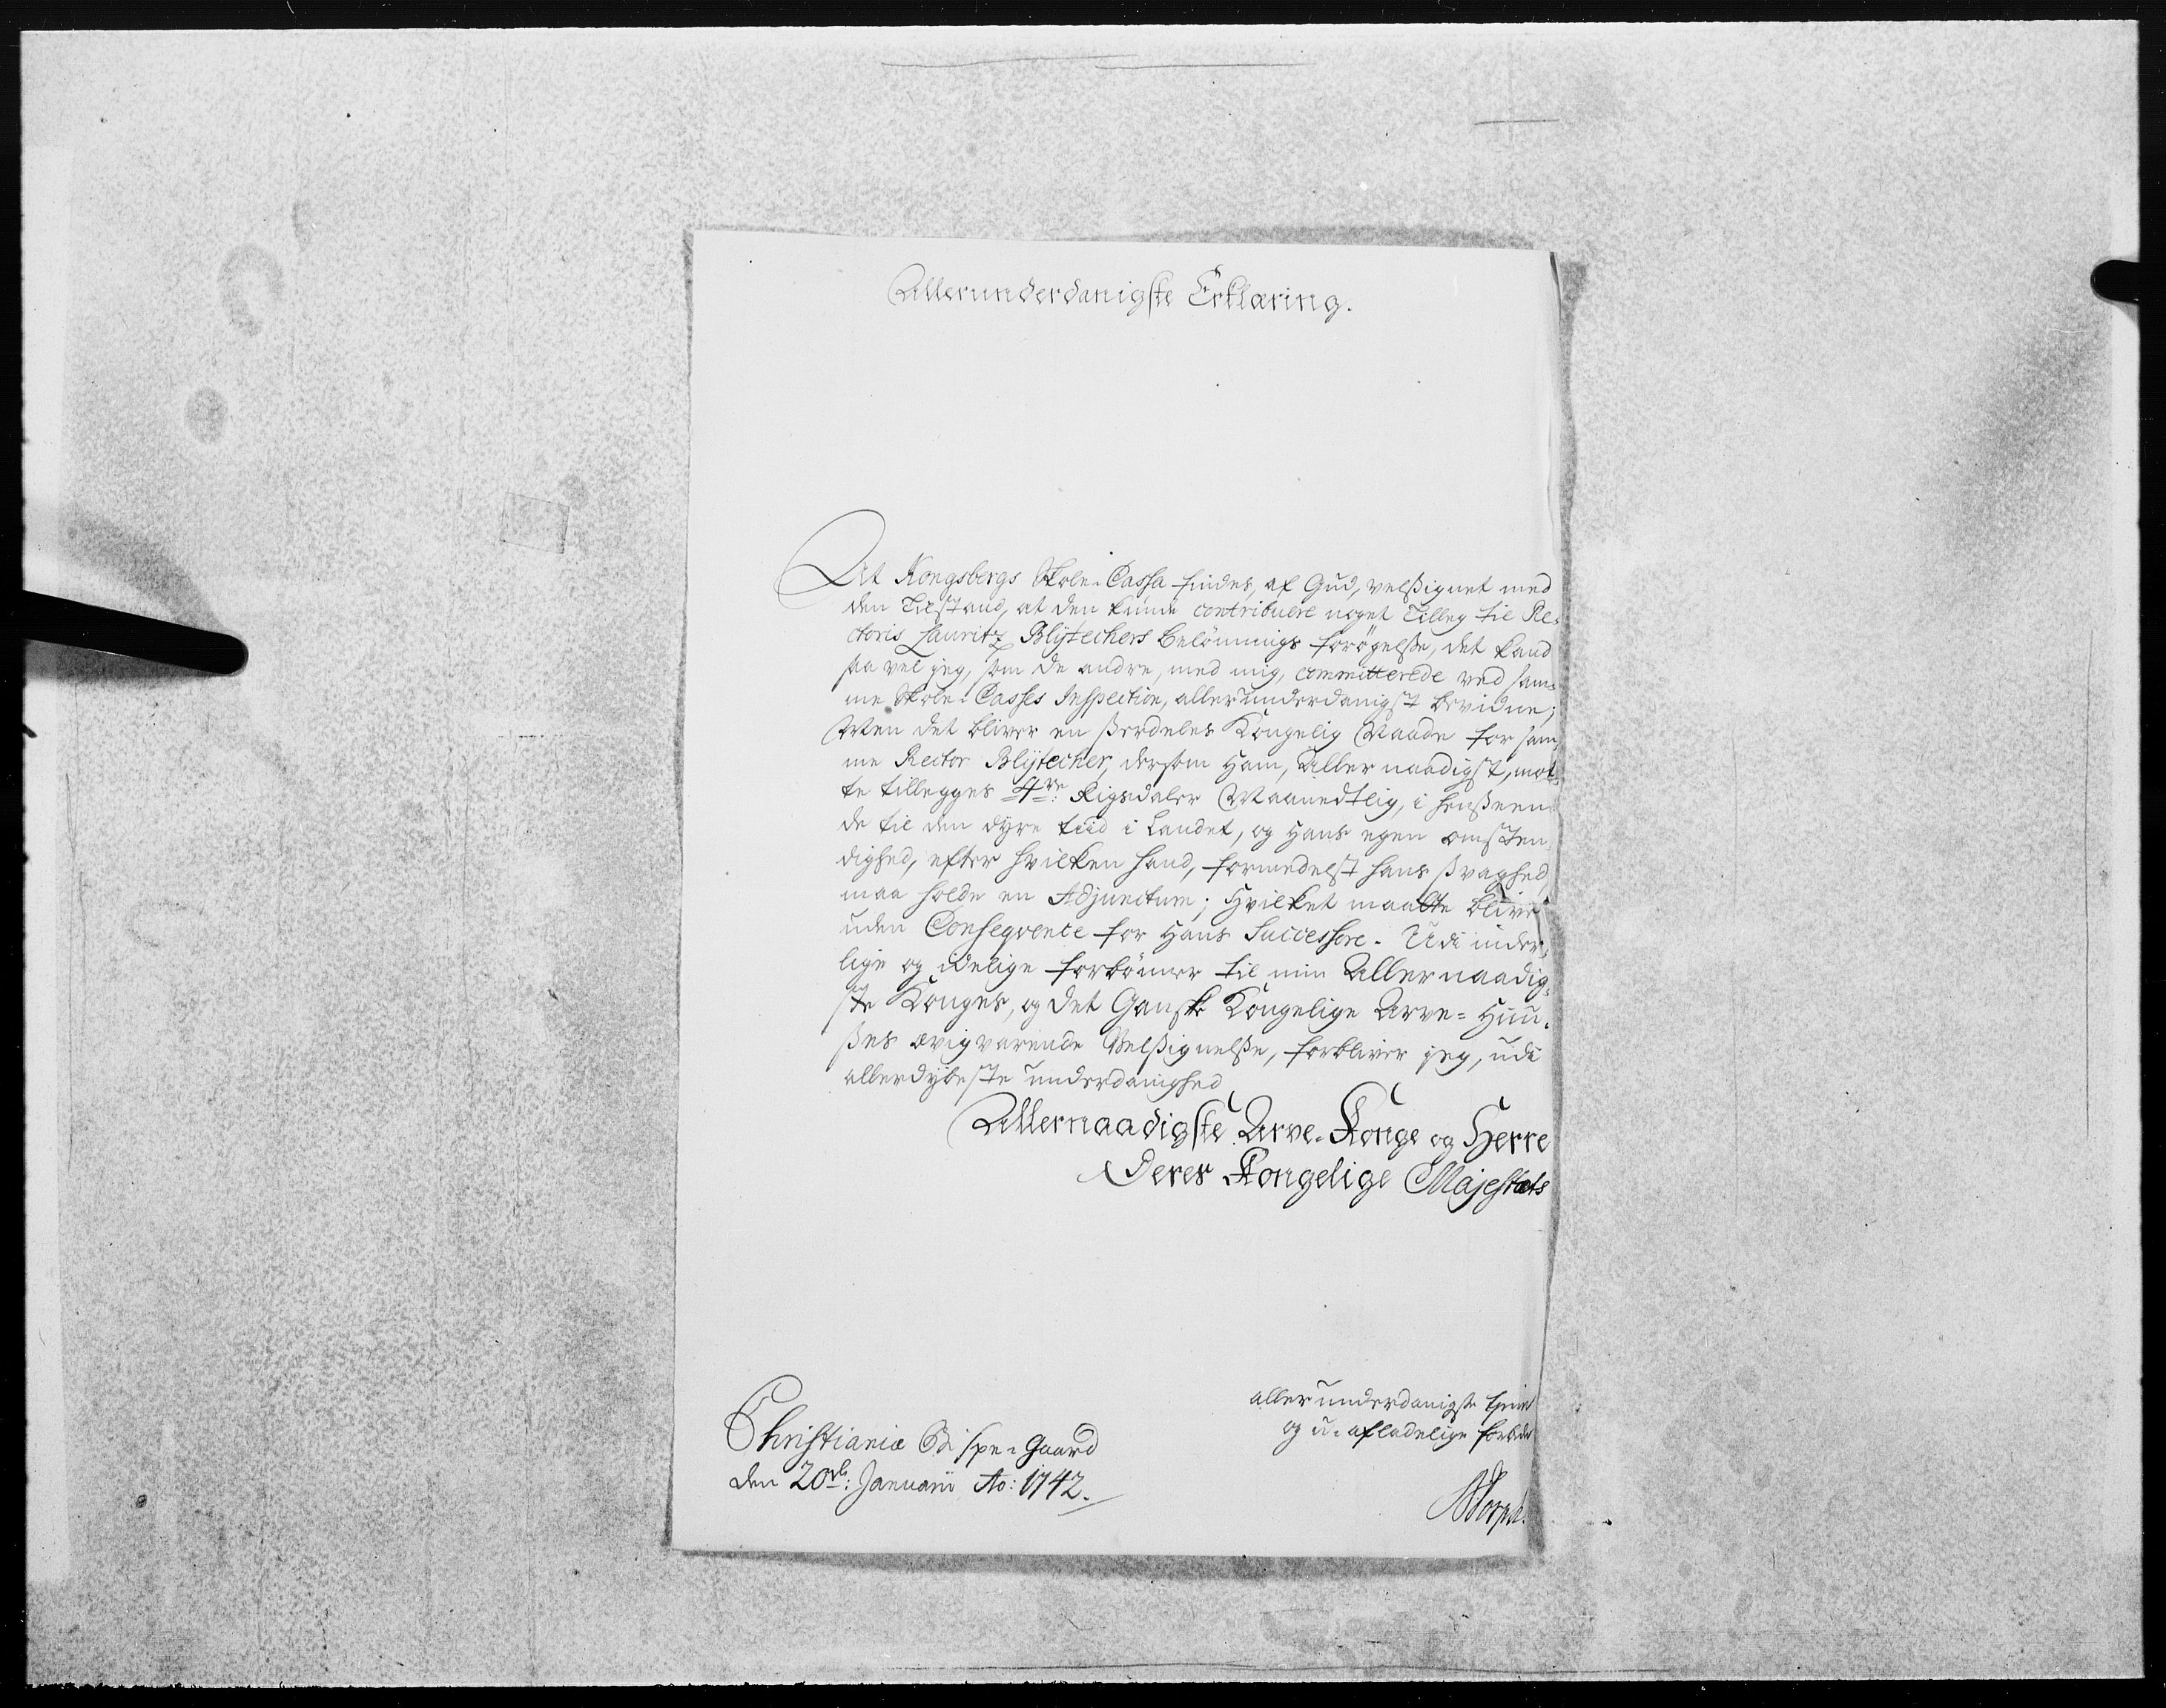 Allerunderdanigste Erklæring.
At Kongsbergs Skole-Cassa findes, af Gud, velsignet med
den Tilstand, at den kunde contribuere noget Tilleg til Re-
ctoris Lauritz Blÿtechers Belönnings forögelsse, det kand
saa vel jeg, som de andre, med mig, committerede ved sam-
me Skole-Casses Inspection, allerunderdanigst bevidne;
Men det bliver en sserdeles Kongelig Naade for sam-
me Rector Blÿtecher, dersom Ham, Allernaadigst, mot-
te tillegges 4re Rigsdaler Maanedtlig, i Hensseen-
de til den dyre tiid i Landet, og Hans egen omsten-
dighed, efter hvilken Hand, formedelst Hans Svaghed,
maa holde en Adjunctum; Hvilket maatte blive
uden Conseqvence for Hans Successore. Udi inder-
lige og idelige forbönner til min Allernaadig-
ste Konges, og det Ganske Kongelige Arve-Huu-
sses ævigvarende Velssignelsse, forbliver jeg, udi
allerdybeste underdanighed
Allernaadigste Arve-Konge og Herre
Deres Kongelige Majestæts
allerunderdanigste
og u-afladelige forbeder
Christiania Bispe-Gaard
den 20de: Januarii Ao: 1742.
NDorph.